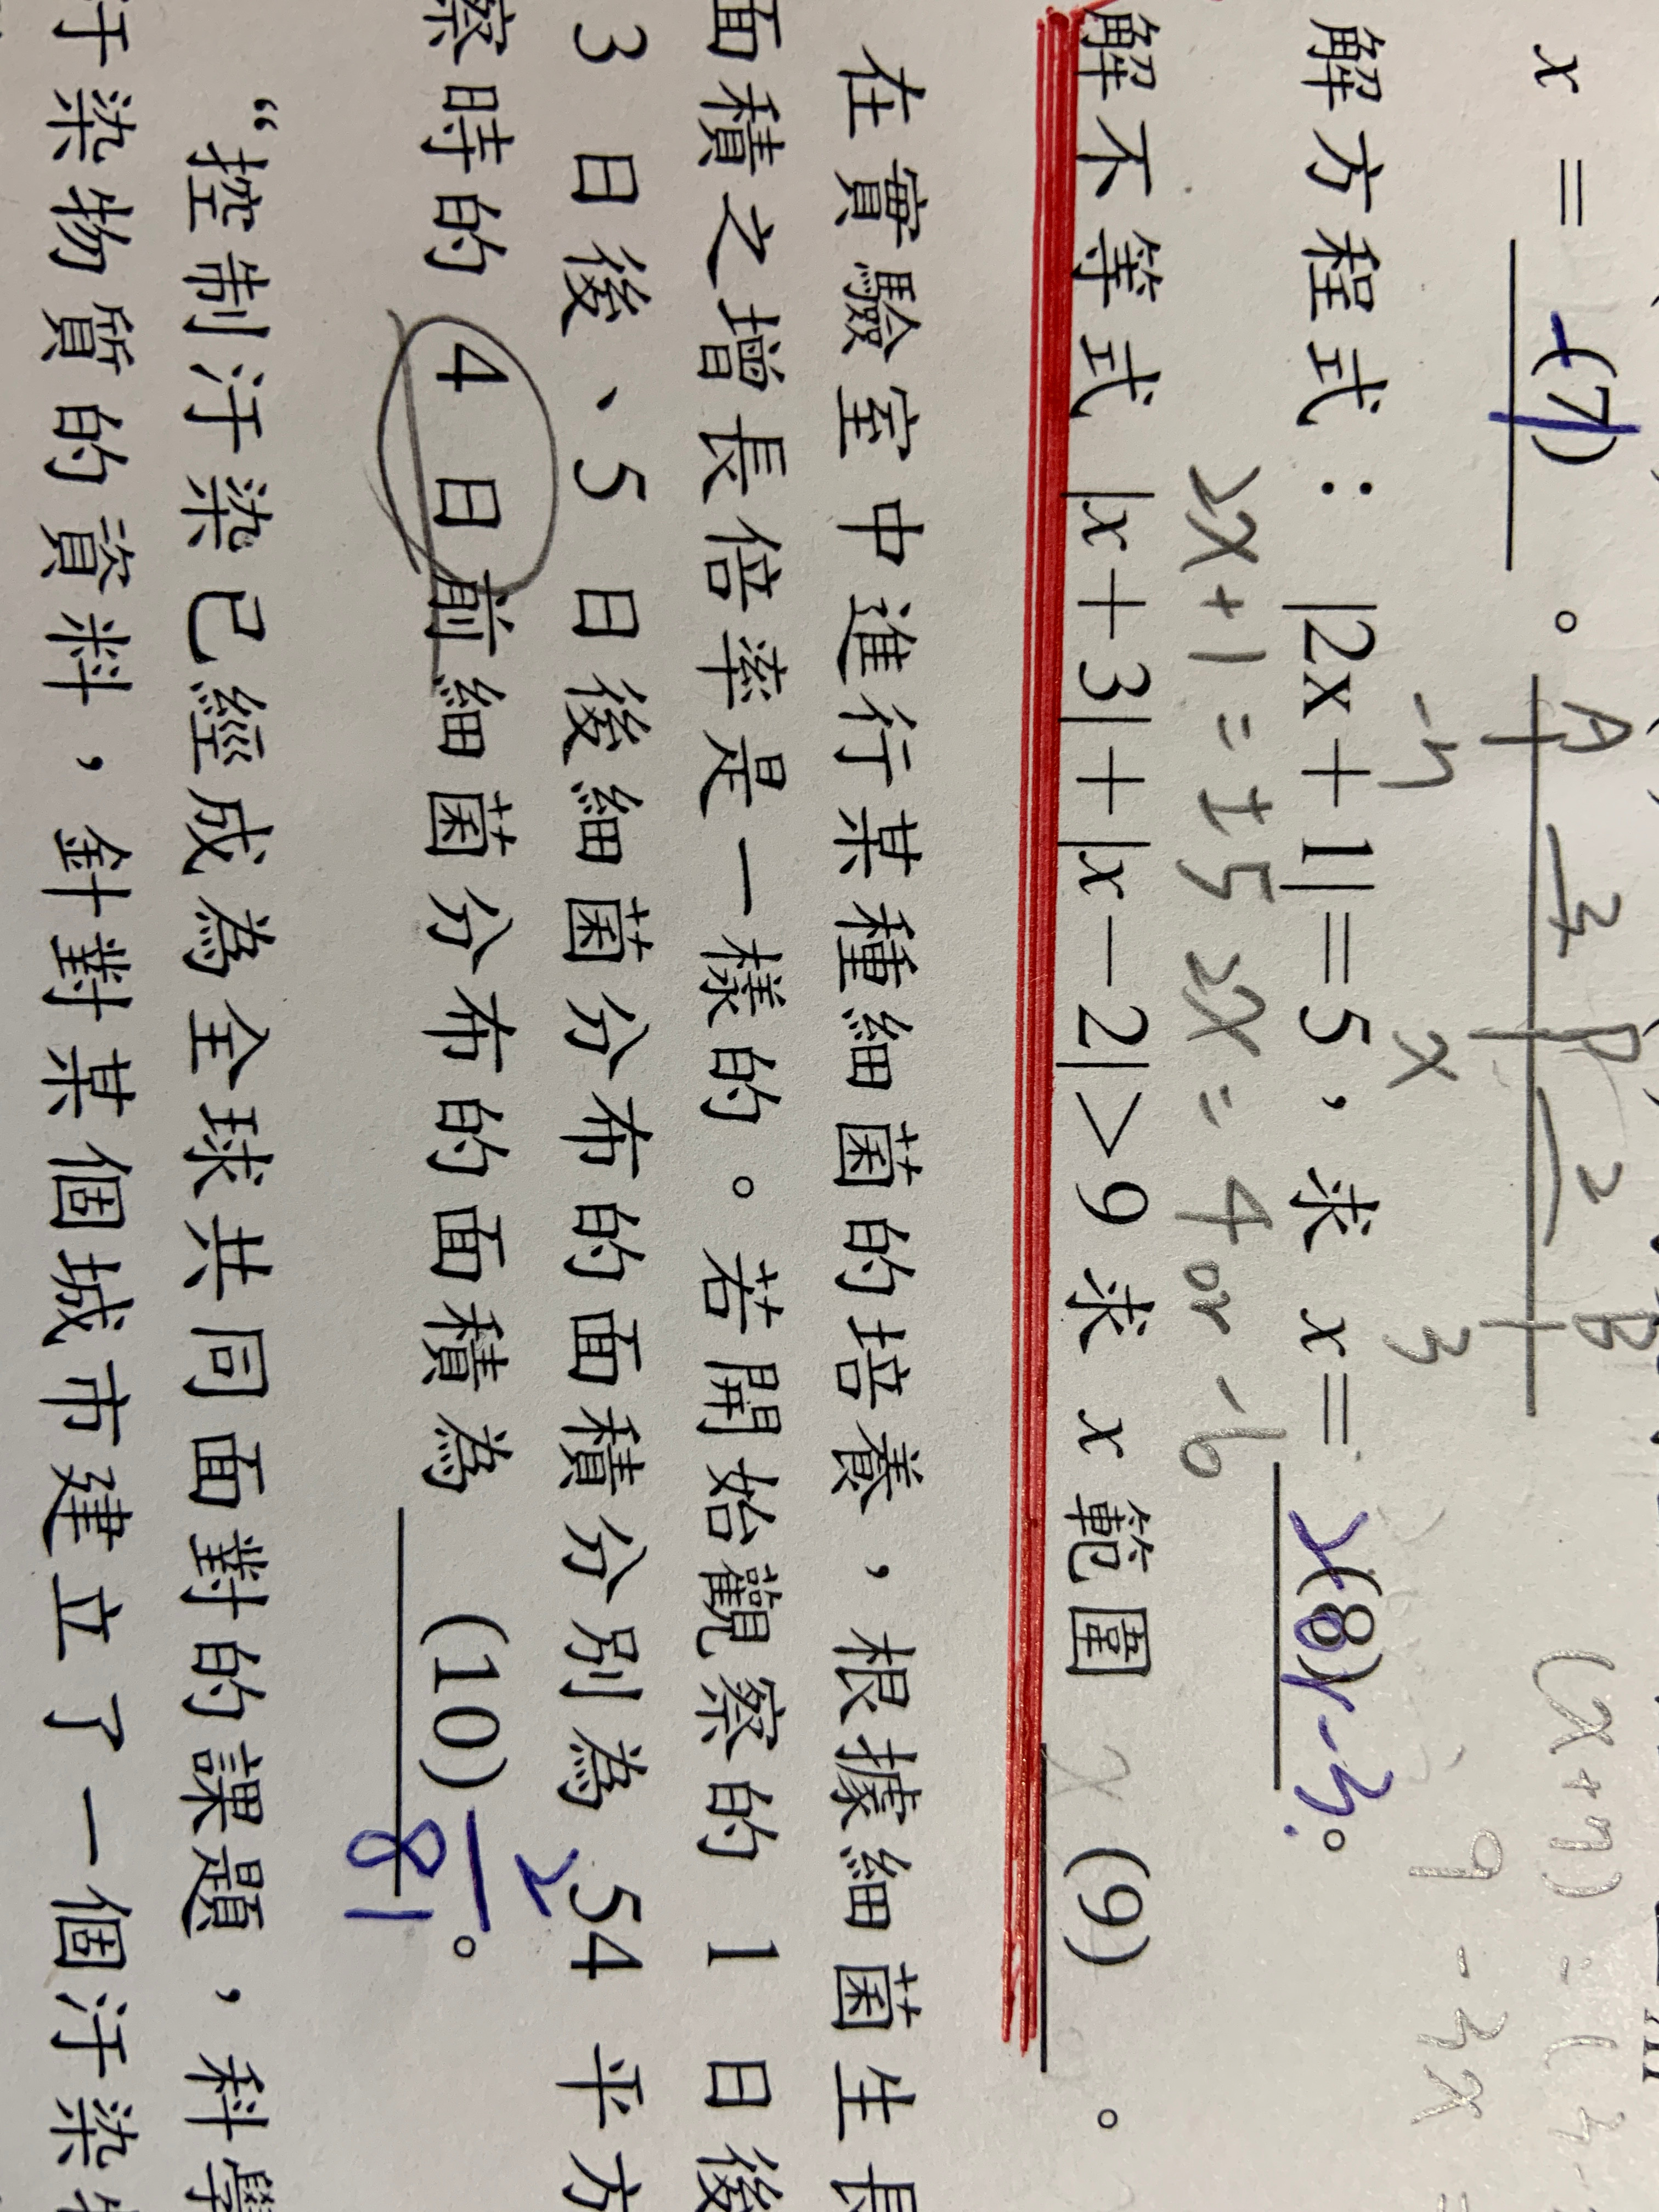 x = (7) 。
-7
A 3 P 2 B
-7 x 3
(x+7) = (3-
9-3x=
解方程式： |2x+1|=5，求 x= 2(8)-3。
2x+1=±5 2x=4 or -6
解不等式 |x+3|+|x-2|>9 求 x 範圍 x (9) 。
在實驗室中進行某種細菌的培養，根據細菌生長
面積之增長倍率是一樣的。若開始觀察的 1 日後
3 日後、5 日後細菌分布的面積分別為 2、54 平方
察時的 4 日前細菌分布的面積為 (10) 。
2/81
“控制汙染已經成為全球共同面對的課題，科學
汙染物質的資料，針對某個城市建立了一個汙染物